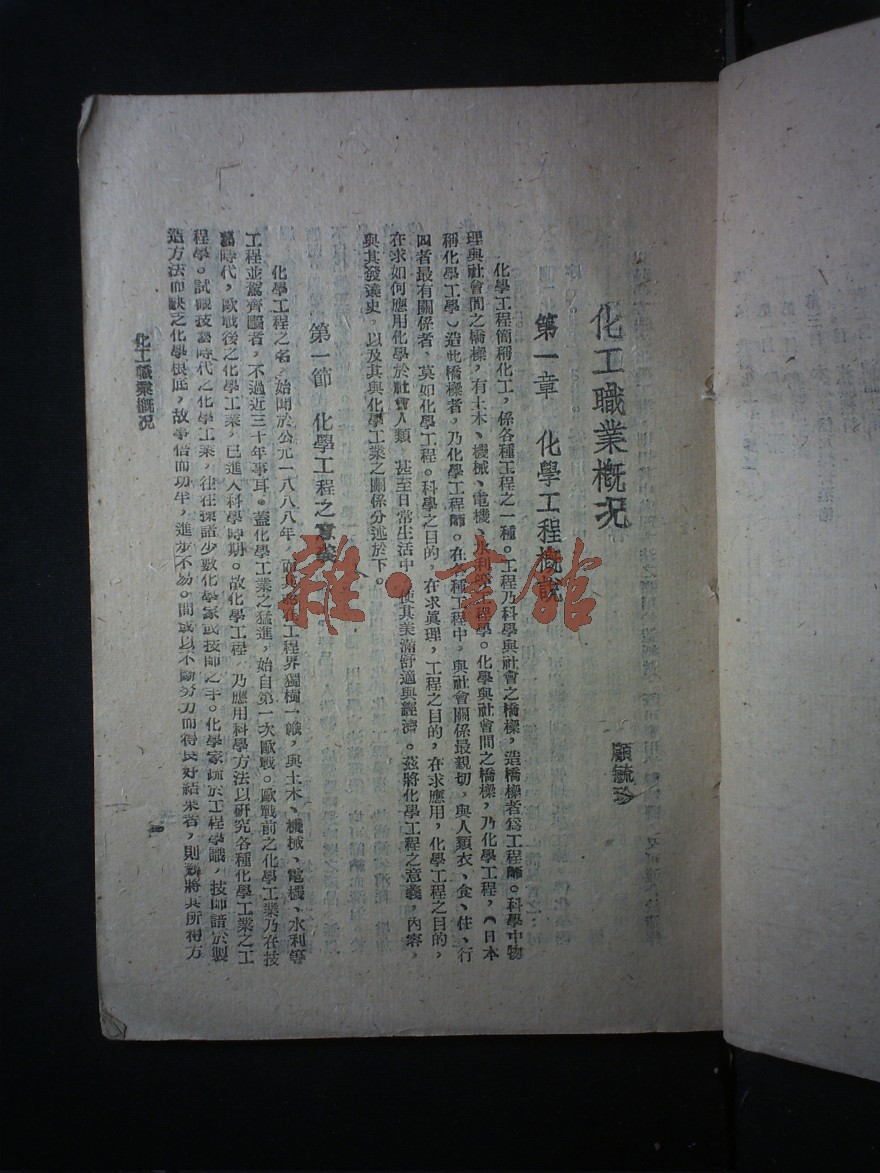 化工職業概況
顧毓珍
第一章 化學工程概說
化學工程簡稱化工，係各種工程之一種。工程乃科學與社會之橋樑，造橋樑者爲工程師。科學中物
理與社會間之橋樑，有土木、機械、電機、水利等工程學。化學與社會間之橋樑，乃化學工程，（日本
稱化學工學）造此橋樑者，乃化學工程師。在各種工程中，與社會關係最親切，與人類衣、食、住、行
四者最有關係者，莫如化學工程。科學之目的，在求眞理，工程之目的，在求應用，化學工程之目的，
在求如何應用化學於社會人類，甚至日常生活中，使其美滿舒適與經濟。茲將化學工程之意義，內容，
與其發達史，以及其與化學工業之關係分述於下。
第一節 化學工程之意義
化學工程之名，始聞於公元一八八八年，而其能在工程界獨樹一幟，與土木、機械、電機、水利等
工程並駕齊驅者，不過近三十年事耳。蓋化學工業之猛進，始自第一次歐戰。歐戰前之化學工業乃在技
藝時代，歐戰後之化學工業，已進入科學時期。故化學工程，乃應用科學方法以研究各種化學工業之工
程學。試觀技藝時代之化學工業，往往操諸少數化學家或技師之手。化學家疏於工程學識，技師諳於製
造方法而缺乏化學根底，故事倍而功半，進步不易。間或以不斷努力而得良好結果者，則將其所得方
化工職業概況
雜·書館